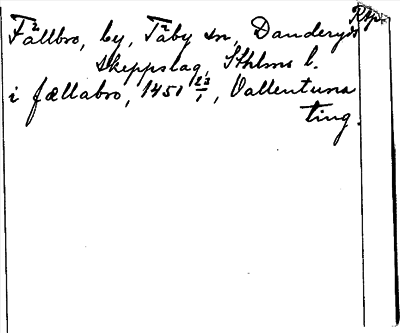 Fällbro, by, Täby sn, Danderyds
Rkp.
Skeppslag, Sthlms l.
i fællabro, 1451 23/1, Vallentuna
ting.